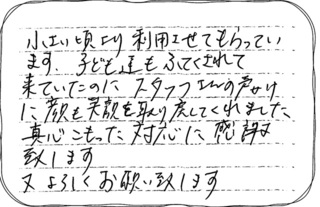 小さい頃より利用させてもらってい
ます、子ども達もふてくされて
来ていたのにスタッフさんの声かけ
に顔も笑顔を取り戻してくれました
真心こもった対応に感謝
致します
又よろしくお願い致します